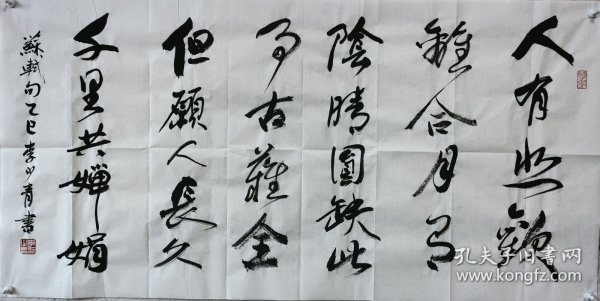 人有悲歡
離合月有
陰晴圓缺此
事古難全
但願人長久
千里共嬋娟
蘇軾句乙巳李少青書
孔夫子旧书网
www.kongfz.com